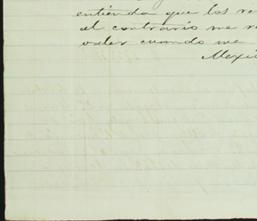 entienda que las re
al contrario me re
valer cuando me
Mexi